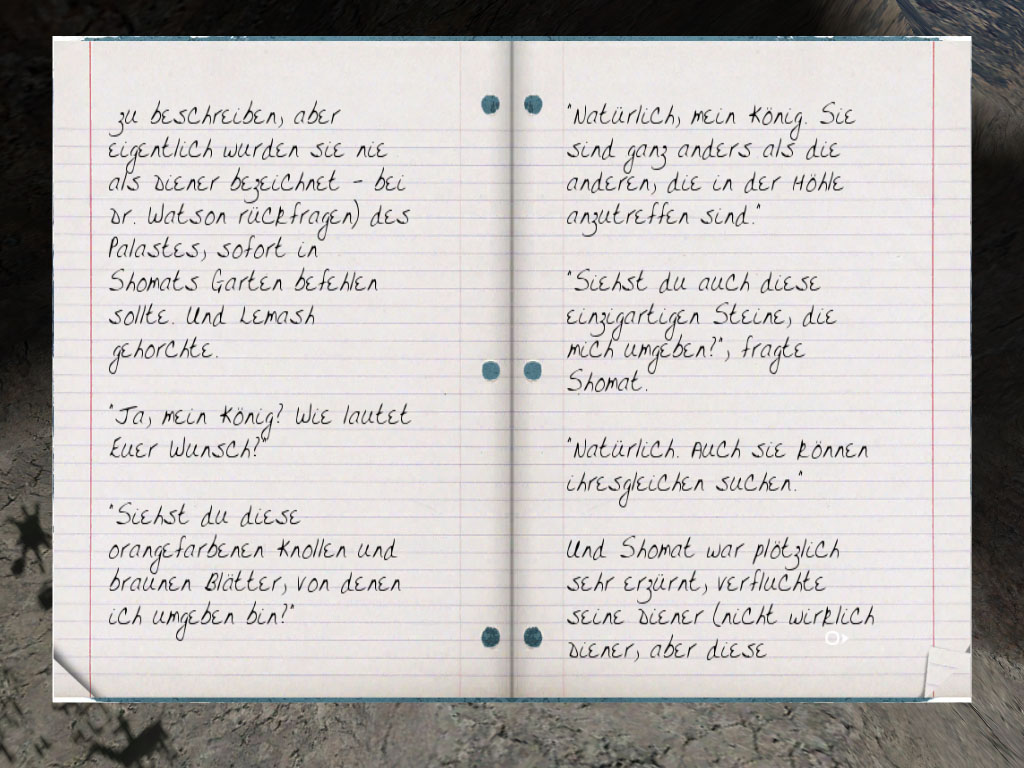 zu beschreiben, aber
eigentlich wurden sie nie
als Diener bezeichnet - bei
Dr. Watson rückfragen) des
Palastes, sofort in
Shomats Garten befehlen
sollte. Und Lemash
gehorchte.
"Ja, mein König? Wie lautet
Euer Wunsch?"
"Siehst du diese
orangefarbenen Knollen und
braunen Blätter, von denen
ich umgeben bin?"
"Natürlich, mein König. Sie
sind ganz anders als die
anderen, die in der Höhle
anzutreffen sind."
"Siehst du auch diese
einzigartigen Steine, die
mich umgeben?", fragte
Shomat.
"Natürlich. Auch sie können
ihresgleichen suchen."
Und Shomat war plötzlich
sehr erzürnt, verfluchte
seine Diener (nicht wirklich
Diener, aber diese